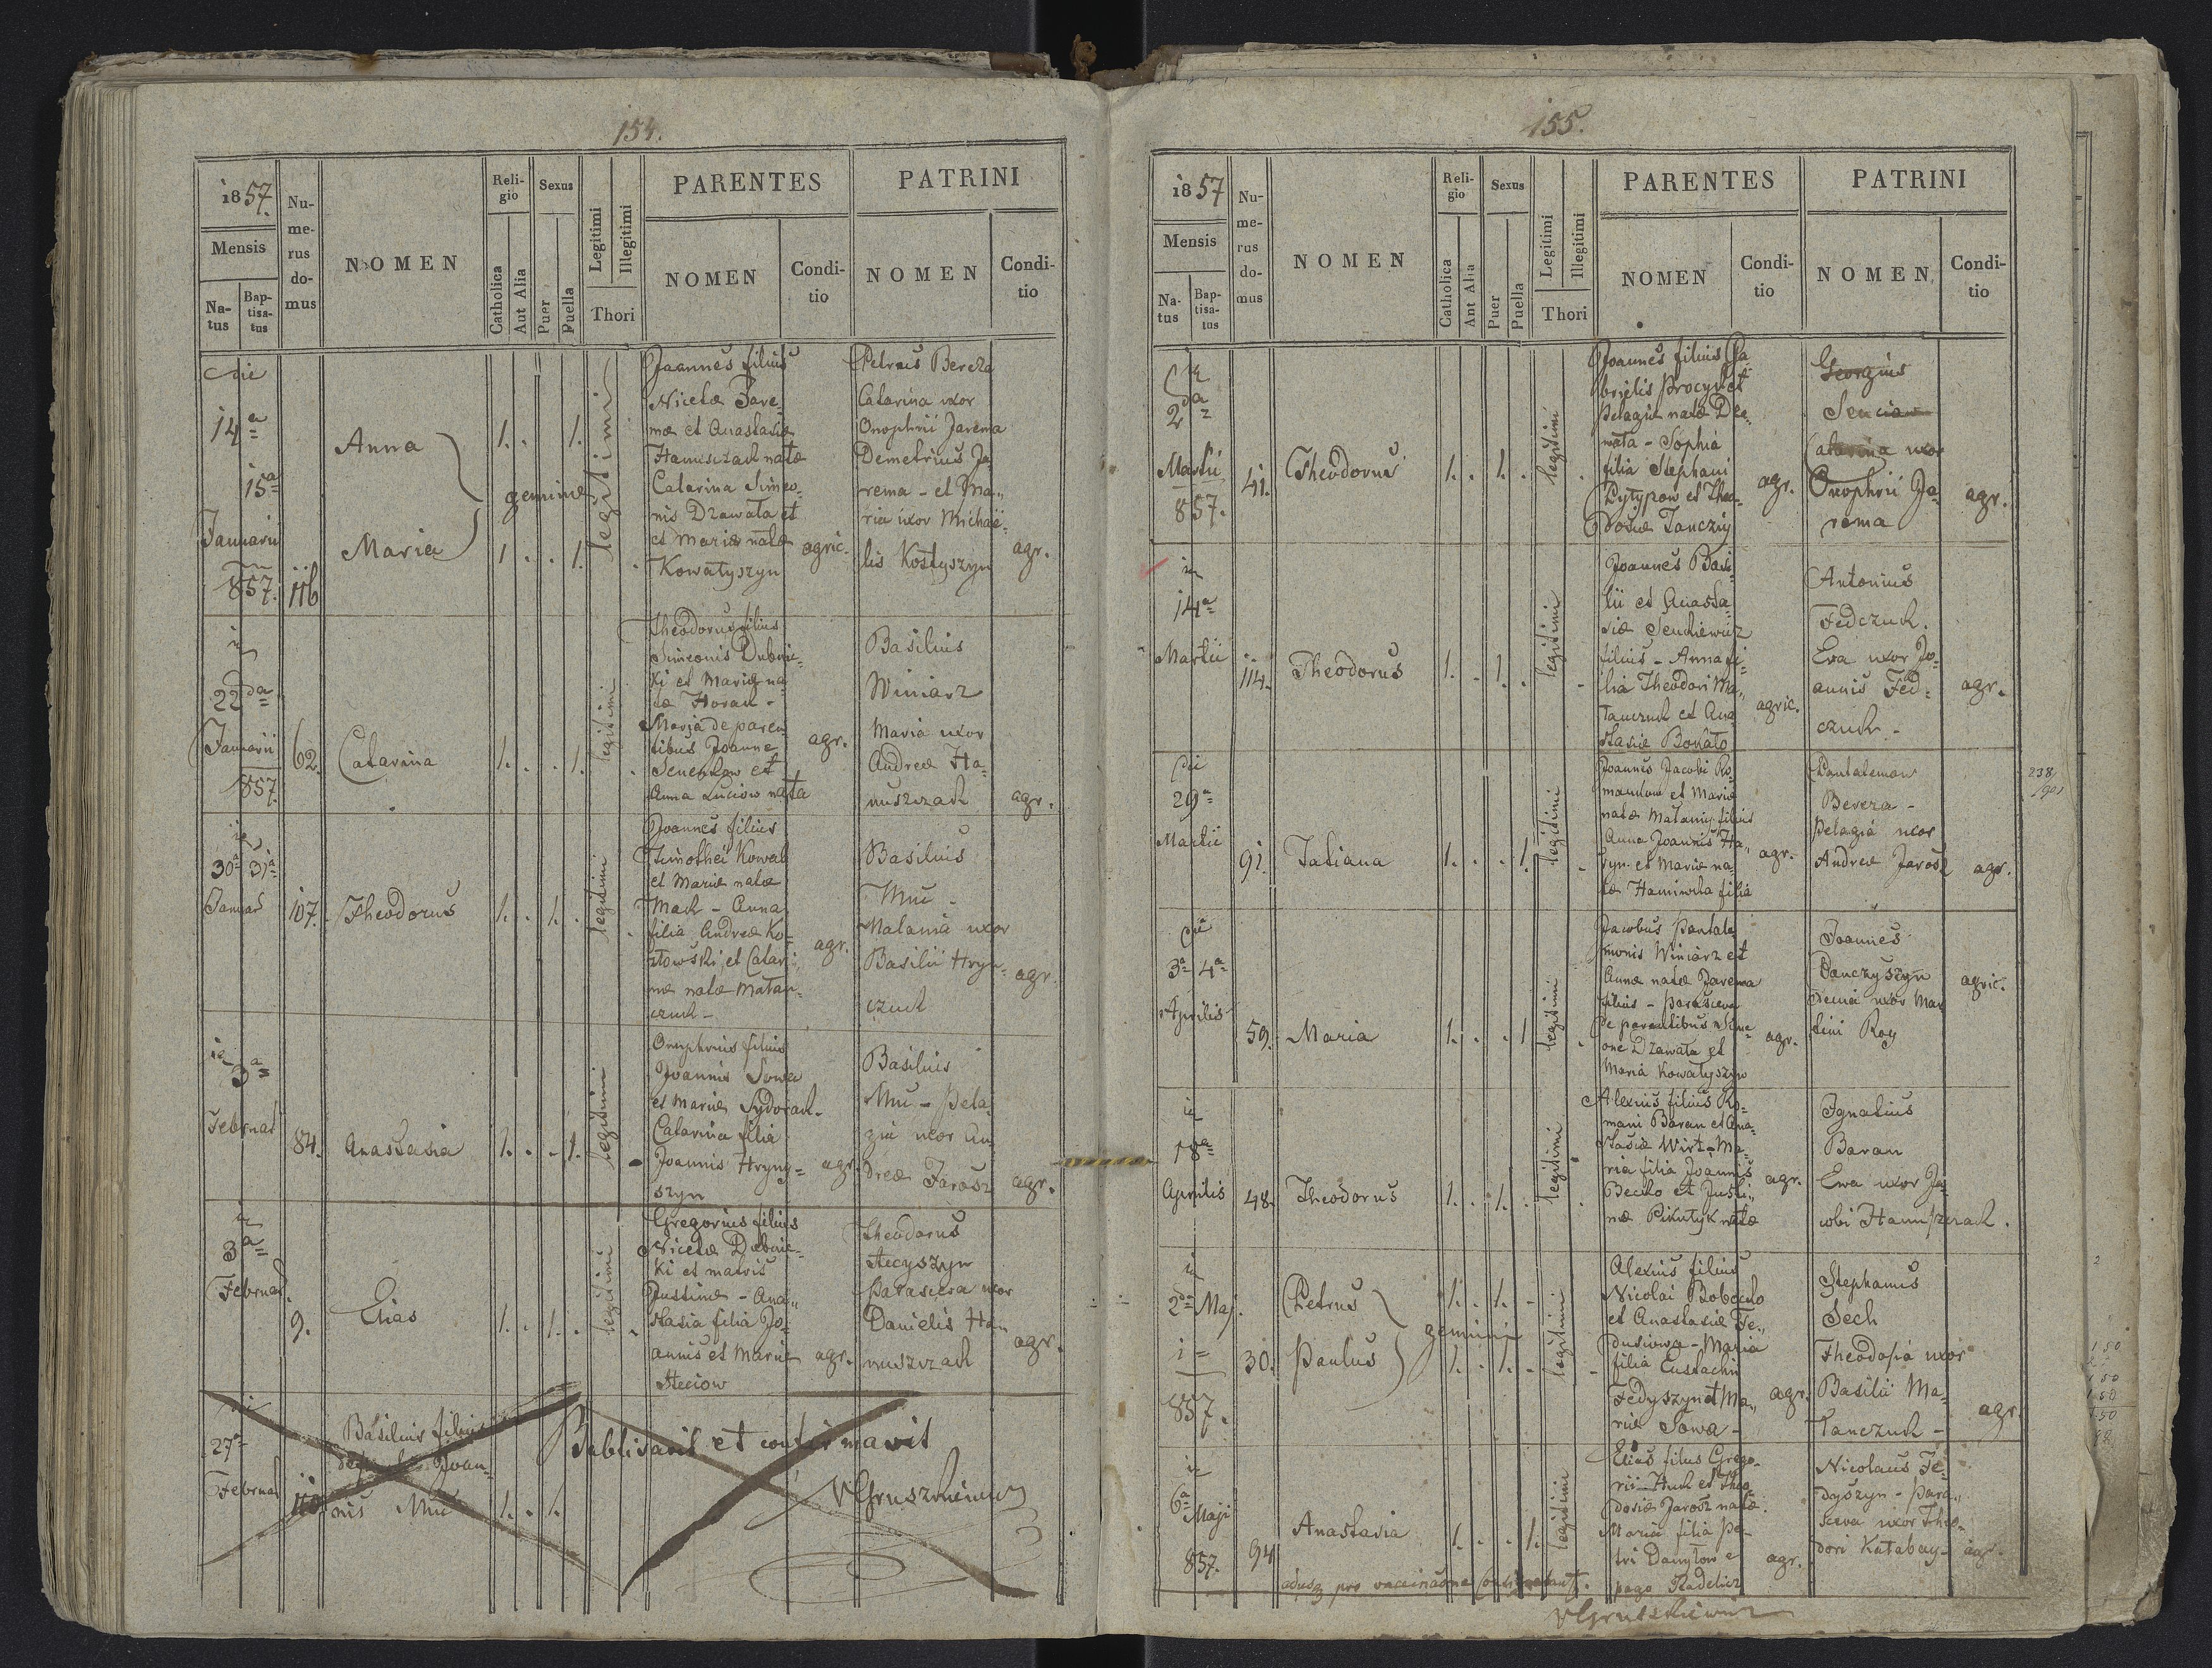 154.
1857.
Mensis
Na-
tus
Bap-
tisa-
tus
Nu-
me-
rus
do-
mus
NOMEN
Reli-
gio
Catholica
Aut Alia
Sexus
Puer
Puella
Legitimi
Illegitimi
Thori
PARENTES
NOMEN
Condi-
tio
PATRINI
NOMEN
Condi-
tio
die
14a
15a
Januarii
857.
116
Anna
Maria
geminæ
1. . 1.
1 . . 1.
legitimi
Joannes filius
Nicetæ Jare-
mæ et Anastasiæ
Hanuszczak natæ
Catarina Simeo-
nis Dzawała et
et Mariæ natæ
Kowałyszyn
agric.
Petrus Bereza
Catarina uxor
Onophrii Jarema
Demetrius Ja-
rema - et Ma-
ria uxor Michaë-
lis Kostyszyn
agr.
22da
Januarii
857
62.
Catarina
1. . . 1.
legitimi
Theodorus filius
Simeonis Dubnic-
ki et Mariæ na-
tæ Horak -
Maria de paren-
tibus Joanne
et
Anna Luciow nata
agr.
Basilius
Winiarz
Maria uxor
Andreæ Ha-
nuszczak
agr.
30a 31a
Januar
107.
Theodorus
1. . 1. .
legitimi
Joannes filius
Timothei Kowal
et Mariæ natæ
Mach - Anna
filia Andreæ Ko-
złowski et Catari-
næ natæ Matan-
czuk -
agr.
Basilius
Muc -
Malania uxor
Basilii Hryn-
czuk
agr.
3a
Februar
84.
Anastasia
1. . . 1.
legitimi
Onuphrius filius
Joannis Sowa
et Mariæ Sydorak -
Catarina filia
Joannis Hryny-
szyn
agr.
Basilius
Muc - Pela-
gia uxor An-
dreæ Jarosz
agr.
3a
Februar.
9.
Elias
1. . 1. .
legitimi
Gregorius filius
Nicetæ Dubnic-
ki et matris
Justinæ - Ana-
stasia filia Jo-
annis et Mariæ
Steciow
agr.
Theodorus
Stecyszyn
Parasceva uxor
Danielis Ha-
nuszczak
agr.
27a
Februar
110
Basilius filius
Joan-
nis Muc
1. . 1.
Publicavit et confirmavit
VGruszkiewicz
155.
1857
Mensis
Na-
tus
Bap-
tisa-
tus
Nu-
me-
rus
do-
mus
NOMEN
Reli-
gio
Catholica
Aut Alia
Sexus
Puer
Puella
Legitimi
Illegitimi
Thori
PARENTES
NOMEN
Condi-
tio
PATRINI
NOMEN
Condi-
tio
2da
Martii
857.
41.
Theodorus
1. . 1. .
legitimi
Joannes filius Ga-
brielis Procyk et
Pelagiæ natæ
- Sophia
filia Stephani
Pytypow et Theo-
dosiæ Tanczuj
agr.
Georgius
Senciow
Catarina uxor
Onophrii Ja-
rema
agr.
14a
Martii
114.
Theodorus
1. . 1. .
legitimi
Joannes Basi-
lii et Anasta-
siæ Senkiewicz
filius - Anna fi-
lia Theodori Ma-
tanczuk et Ana-
stasiæ Bonato
agric.
Antonius
Fedczuk.
Eva uxor Jo-
annis Fed-
czuk -
agr.
die
29a
Martii
91.
Tatiana
1. . . 1.
legitimi
Joannes Jacobi Ro-
maniow et Mariæ
natæ Matanij filius
Anna Joannis Ha-
ryn et Mariæ na-
tæ filia
agr.
Pantalemon
Bereza -
Pelagia uxor
Andreæ Jarosz
agr.
238/
901
die
3a 4a
Aprilis
59.
Maria
1. . . 1
legitimi
Jacobus Pantale-
monis Winiarz et
Annæ natæ Jarema
filius - Parasceva
de parentibus Sime-
one Dzawała et
Maria Kowałyszyn
agr.
Joannes
Danczyszyn
uxor Mar-
tini Roy
agric.
18a
Aprilis
48.
Theodorus
1. . 1. .
legitimi
Alexius filius Ro-
mani Baran et Ana-
stasiæ Wirt - Ma-
ria filia Joannis
Becko et Justi-
næ Pikulyk natæ
agr.
Ignatius
Baran
Ewa uxor Ja-
cobi Hanuszczak.
2da Maj.
857.
30.
Petrus
Paulus
gemini
1. . 1. -
1. . 1. -
legitimi
Alexius filius
Nicolai Bobecko
et Anastasiæ Fe-
dusiowa - Maria
filia Eustachii
Fedyszyn et Ma-
riæ Sowa -
agr.
Stephanus
Sech
Theodosia uxor
Basilii Ma-
tanczuk -
agr.
6a
Maji
857.
94
Anastasia
1. . . 1.
legitimi
Elias filius Grego-
rii Huk et Theo-
dosiæ Jarosz natæ.
Maria filia Pe-
tri Danyłow e
pago Radelicz
agr.
Nicolaus Fe-
dyszyn - Para-
sceva uxor Theo-
dori Katabay -
agr.
adusq pro vaccinatione
VGruszkiewicz